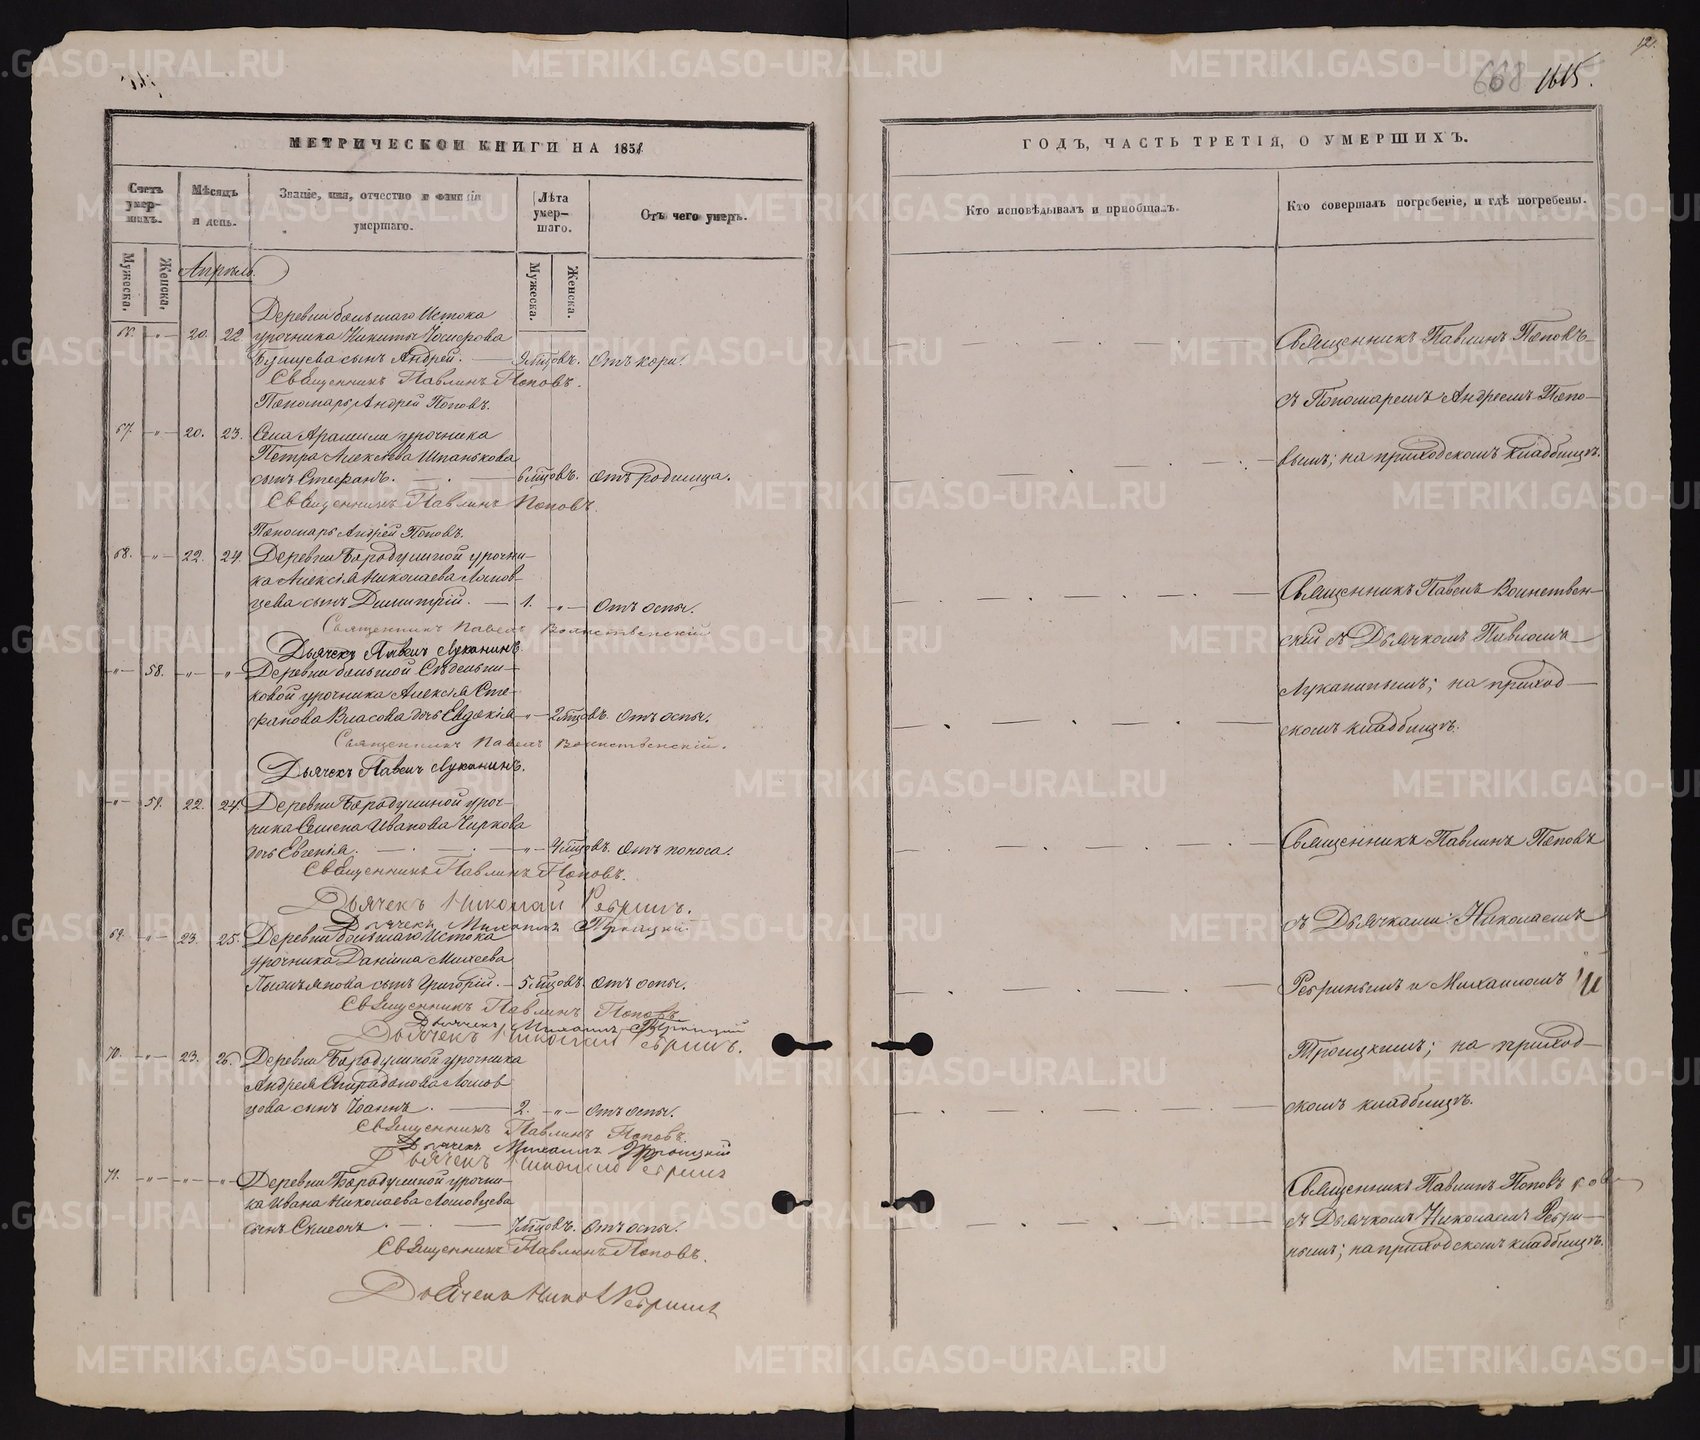 12.
668 1615.
МЕТРИЧЕСКОИ КНИГИ НА 1851
ГОДЪ, ЧАСТЬ ТРЕТІЯ, О УМЕРШИХЪ.
Счетъ умер-шихъ.
Мѣсяцъ и день.
Званіе, имя, отчество и фамилія умершаго.
Лѣта умер-шаго.
Отъ чего умеръ.
Кто исповѣдывалъ и пріобщалъ.
Кто совершалъ погребеніе, и гдѣ погребены.
Мужеска. Женска. Апрѣль. Мужеска. Женска.
Деревни большаго Истока
20. 22. урочника Никиты
сынъ Андрей. — 9 мѣсцовъ. Отъ кори.
Священникъ Павлинъ Поповъ.
Пономарь Андрей Поповъ.
67. — „ — 20. 23. Села Арамили урочника
Петра Алексѣева Шпанькова
сынъ Стефанъ. — 6 мѣсцовъ. Отъ родимца.
Священникъ Павлинъ Поповъ.
Пономарь Андрей Поповъ.
68. — „ — 22. 24. Деревни Бородулиной урочни-
ка Алексія Николаева Ломов-
цева сынъ Димитрій. — 1. — „ — Отъ оспы.
Священникъ Павелъ Воинственскій
Дьячекъ Павелъ Луканинъ.
— „ — 58. — „ — „ — Деревни большой Сѣдельни-
ковой урочника Алексія Сте-
фанова Власова дочь Евдокія — „ — 2 мѣсцовъ. Отъ оспы.
Священникъ Павелъ Воинственскій.
Дьячекъ Павелъ Луканинъ.
— „ — 59. 22. 24. Деревни Бородулиной уроч-
ника Семена Иванова Чиркова
дочь Евгенія. — „ — 4 мѣсцовъ. Отъ поноса.
Священникъ Павлинъ Поповъ.
Дьячекъ Николай Ребринъ.
Дьячекъ Михаилъ Троицкій
69. — „ — 23. 25. Деревни большаго Истока
урочника Даніила Михеева
сынъ Григорій. — 5 мѣсцовъ. Отъ оспы.
Священникъ Павлинъ Поповъ
Дьячекъ Михаилъ Троицкій
Дьячекъ Николай Ребринъ.
70. — „ — 23. 26. Деревни Бородулиной урочника
Андрея Спиридонова Ломов
цова сынъ Іоаннъ. — 2. — „ — Отъ оспы.
Священникъ Павлинъ Поповъ.
Дьячекъ Михаилъ Троицкій
Дьячекъ Николай Ребринъ
71. — „ — „ — „ — Деревни Бородулиной урочни-
ка Ивана Николаева Ломовцева
сынъ Сѵмеонъ. — 7 мѣсцовъ. Отъ оспы.
Священникъ Павлинъ Поповъ.
Дьячекъ Никол Ребринъ
Священникъ Павлинъ Поповъ
съ Пономаремъ Андреемъ Попо-
вымъ; на приходскомъ кладбищѣ.
Священникъ Павелъ Воинствен-
скій съ Дьячкомъ Павломъ
Луканинымъ; на приход-
скомъ кладбищѣ.
Священникъ Павлинъ Поповъ
съ Дьячками: Николаемъ
Ребринымъ и Михаиломъ
Троицкимъ; на приход-
скомъ кладбищѣ.
Священникъ Павлинъ Поповъ
съ Дьячкомъ Николаемъ Ребри-
нымъ; на приходскомъ кладбищѣ.
METRIKI.GASO-URAL.RU